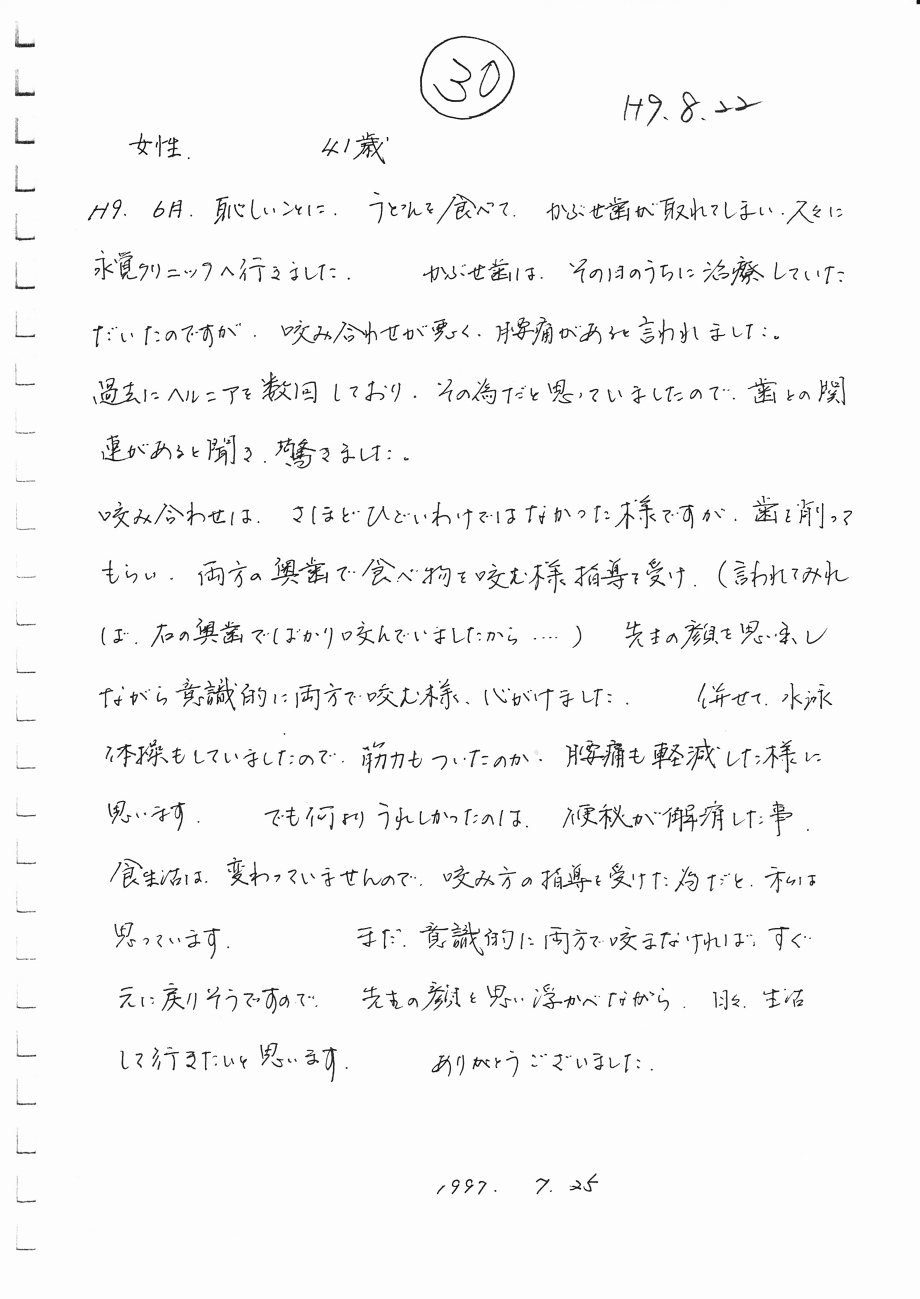 30
H9.8.22
女性. 41歳
H9. 6月. 恥しいことに. うどんを食べて. かぶせ歯が取れてしまい. 久々に
永覚クリニックへ行きました. かぶせ歯は. その日のうちに治療していた
だいたのですが. 咬み合わせが悪く. 腰痛があると言われました。
過去にヘルニアを数回しており. その為だと思っていましたので. 歯との関
連があると聞き. 驚きました。
咬み合わせは. さほどひどいわけではなかった様ですが. 歯を削って
もらい. 両方の奥歯で食べ物を咬む様指導を受け. (言われてみれ
ば. 右の奥歯でばかり咬んでいましたから....) 先生の顔を思い出し
ながら意識的に両方で咬む様. 心がけました. 併せて. 水泳
体操もしていましたので. 筋力もついたのか. 腰痛も軽減した様に
思います. でも何よりうれしかったのは. 便秘が解消した事.
食生活は. 変わっていませんので. 咬み方の指導を受けた為だと. 私は
思っています. まだ. 意識的に両方で咬まなければ. すぐ
元に戻りそうですので. 先生の顔を思い浮かべながら. 日々. 生活
して行きたいと思います. ありがとうございました.
1997. 7. 25